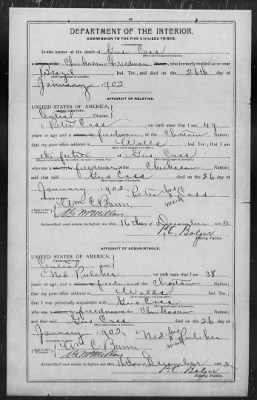 DEPARTMENT OF THE INTERIOR.
COMMISSION TO THE FIVE CIVILIZED TRIBES.
In the matter of the death of Gus Cass
a Chickasaw Freedman who formerly resided at or near
Brazil, Ind. Ter., and died on the 26th
January, 1902
AFFIDAVIT OF RELATIVE.
UNITED STATES OF AMERICA,
Central District.
I, Peter Cass, on oath state that I am 49
years of age and a freedman of the Choctaw Nation;
that my post-office address is Walls, Ind. Ter.; that I am
father of Gus Cass
who was a freedman of the Chickasaw Nation;
that said Gus Cass died on the 26 day of
January, 1902 Peter his x Cass
mark
Wm C. Bunn
Subscribed and sworn to before me this 16 day of December
P.C. Bolger
Notary Public.
AFFIDAVIT OF ACQUAINTANCE.
UNITED STATES OF AMERICA,
Central
I, Ned Pulcher, on oath state that I am 38
years of age, and a freedman of the Choctaw Nation;
that my post-office address is Walls, Ind. Ter.;
that I was personally acquainted with Gus Cass
who was a freedman of the Chickasaw Nation;
that said Gus Cass died on the 26 day of
January, 1902 Ned his x Pulcher
mark
Wm C. Bunn
Subscribed and sworn to before me this 16 day of December
P.C. Bolger
Notary Public.